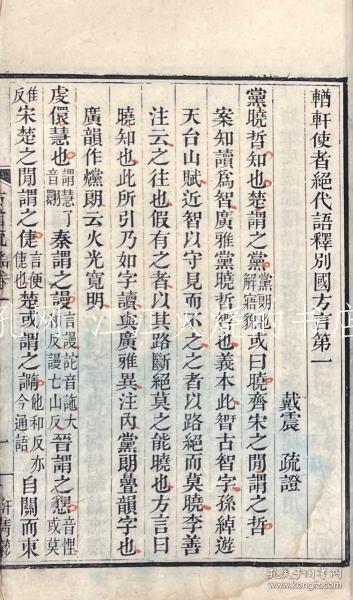 輶軒使者絕代語釋別國方言第一
戴震 疏證
黨曉哲知也楚謂之黨黨朗也解寤貌或曰曉齊宋之閒謂之哲
案知讀爲智廣雅黨曉哲智也義本此智古智字孫綽遊
天台山賦近智以守見而不之之者以路絕而莫曉李善
注云之往也假有之者以其路斷絕莫之能曉也方言曰
曉知也此所引乃如字讀與廣雅異注內黨朗疊韻字也
廣韻作爣朗云火光寬明
虔儇慧也謂慧了音翾秦謂之謾言謾訑音施大和反謾亡山反晉謂之㦟音悝或莫
佳反宋楚之閒謂之倢言便倢也楚或謂之䜏他和反亦今通語自關而東